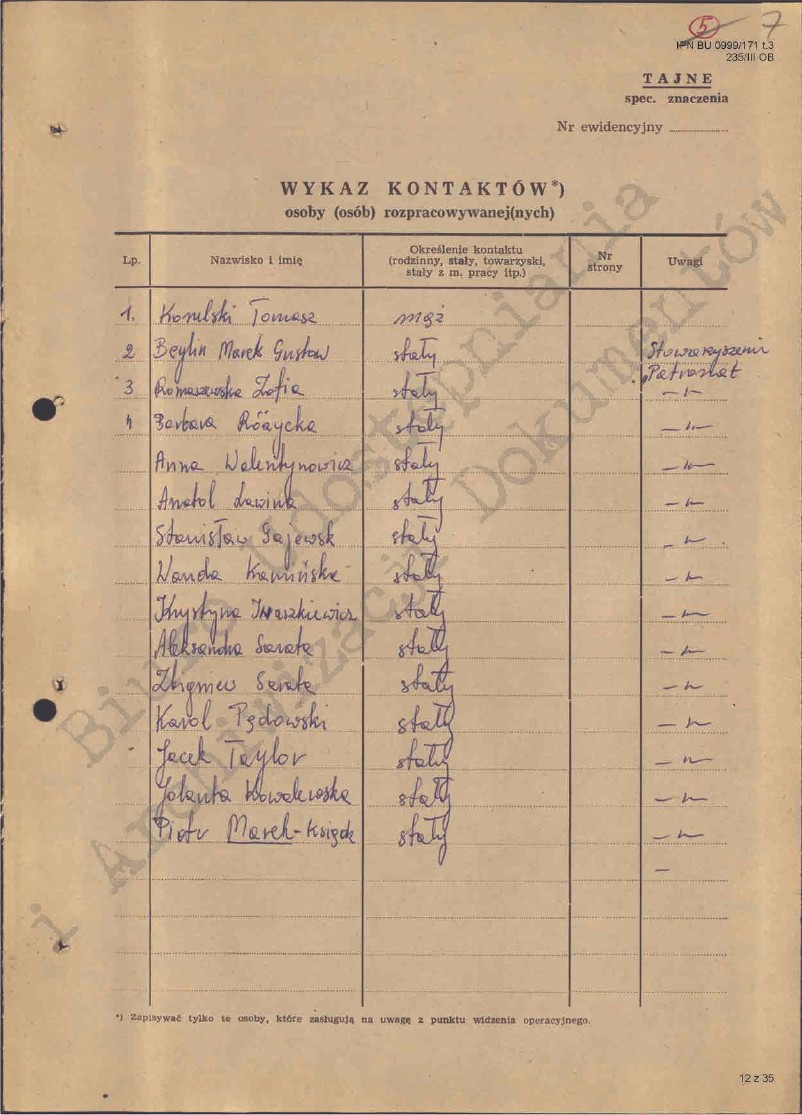 5 7
IPN BU 0999/171 t.3
235/III OB
TAJNE
spec. znaczenia
Nr ewidencyjny
WYKAZ KONTAKTÓW*)
osoby (osób) rozpracowywanej(nych)
Lp. Nazwisko i imię Określenie kontaktu (rodzinny, stały, towarzyski, stały z m. pracy itp.) Nr strony Uwagi
1. Tomasz mąż
2 Beylin Marek Gustaw stały Stowarzyszenie
Patronat
3 Romaszewska Zofia stały -"-
4 Barbara Różycka stały -"-
Anna Walentynowicz stały -"-
Anatol Lawina stały -"-
Stanisław Gajewsk stały -"-
Wanda Kamińska stały -"-
Krystyna Iwaszkiewicz stały -"-
Aleksandra Sarata stały -"-
Zbigniew Sarata stały -"-
Karol Pędowski stały -"-
Jacek Taylor stały -"-
Jolanta Kowalewska stały -"-
Piotr Marek-Książek stały -"-
-
*) Zapisywać tylko te osoby, które zasługują na uwagę z punktu widzenia operacyjnego.
Biuro Udostępniania
i Archiwizacji Dokumentów
12 z 35